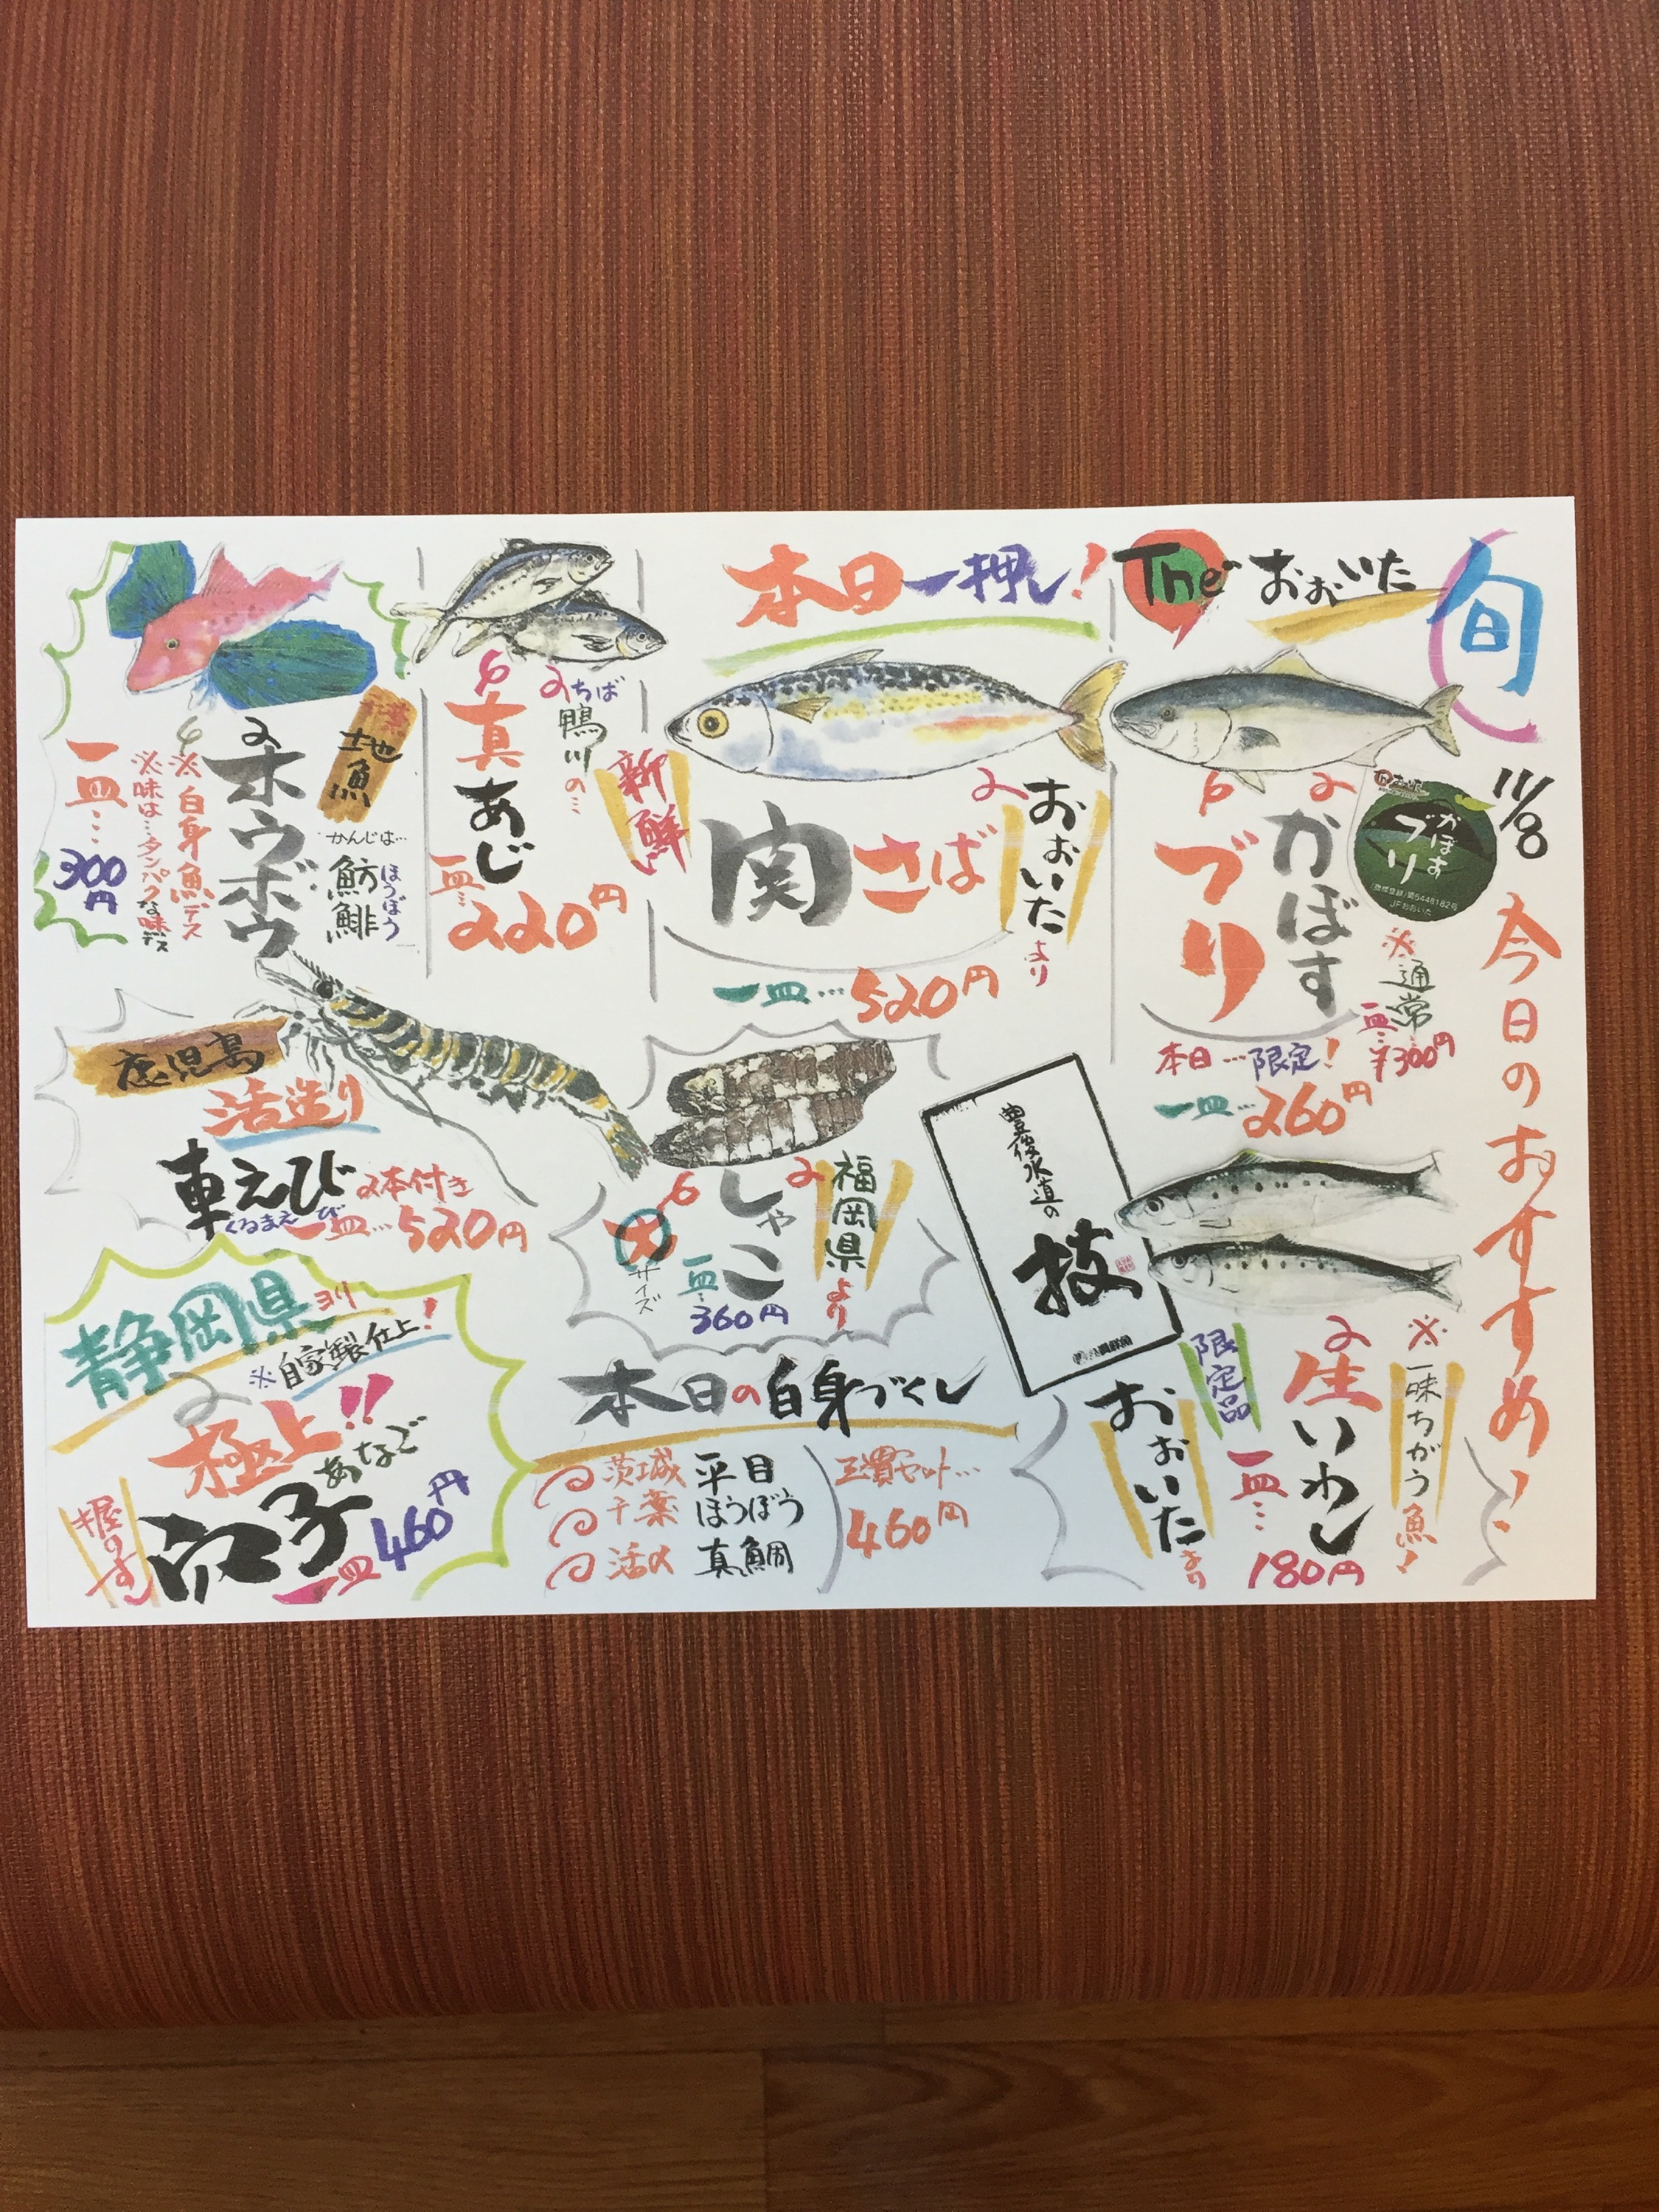 旬
11/8
今日のおすすめ!
The おおいた
かぼす
ブリ
かぼす
ブリ
JFおおいた
※通常
一皿…¥300円
本日…限定!
一皿…260円
本日一押し!
おおいた
より
関さば
新鮮
一皿…520円
ちば
鴨川の…
真あじ
一皿…220円
千葉
地魚
ホウボウ
かんじは…
魴鮄
ほうぼう
※白身魚デス
※味は…タンパクな味デス
一皿…
300円
鹿児島
活造り
車えび
くるまえび
2本付き
一皿…520円
福岡県
より
しゃこ
大
サイズ
一皿…
360円
豊後水道の
技
※一味ちがう魚!
生いわし
限定品
一皿…
180円
おおいた
より
静岡県ヨリ
※自家製仕上!
極上!!
あなご
穴子
一皿
460円
本日の白身づくし
茨城 平目
千葉 ほうぼう
活〆 真鯛
三貫セット…
460円